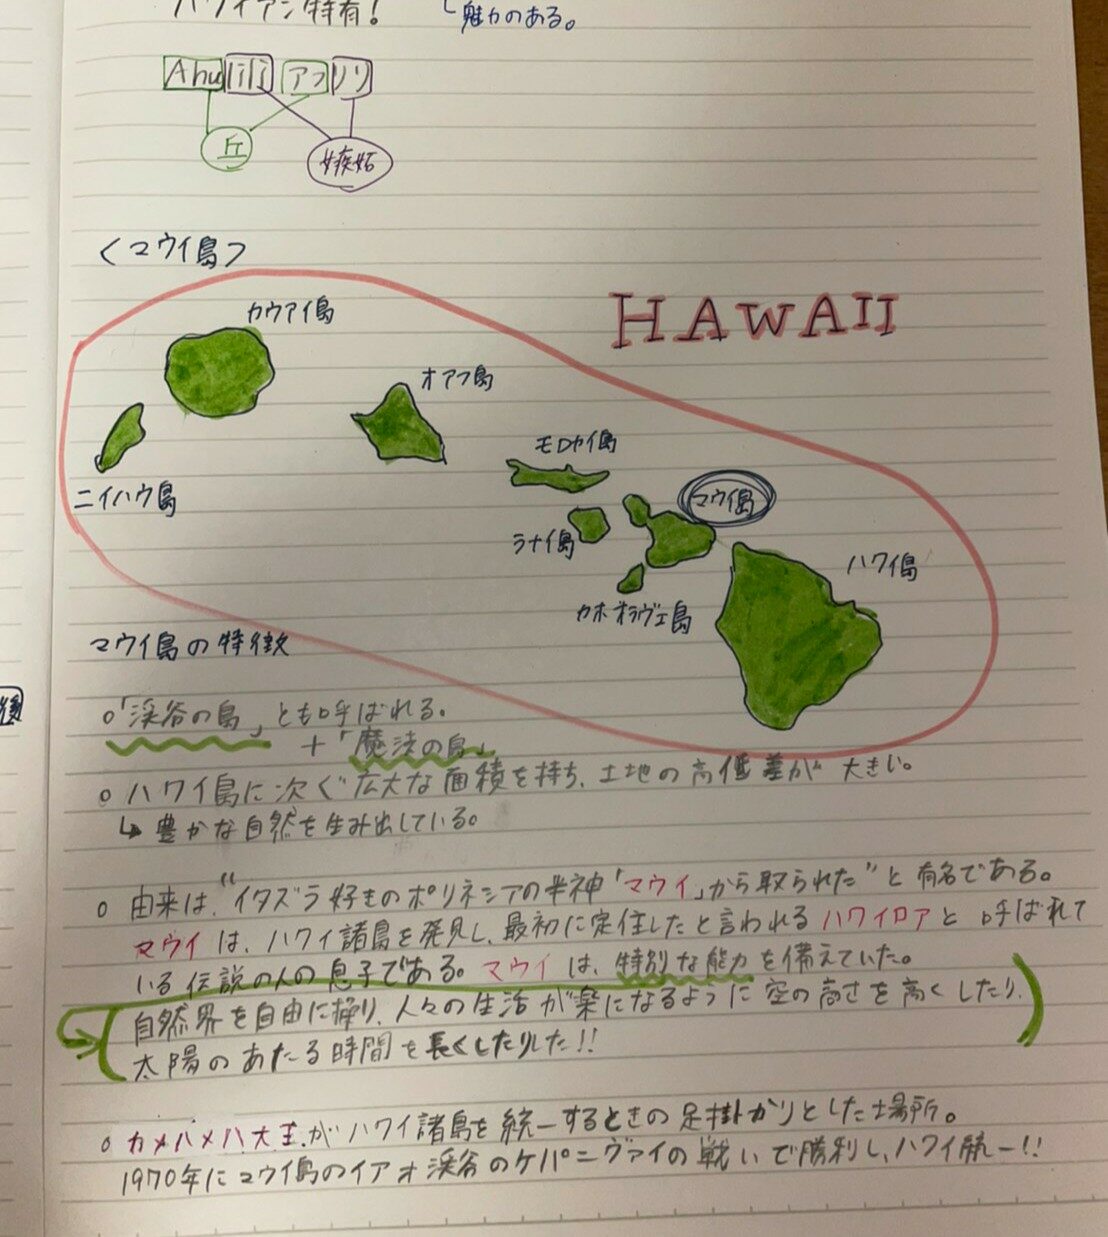 ハワイアン特有！ └魅力のある。
Ahu lili アフリリ
丘 嫉妬
〈マウイ島〉
HAWAII
カウアイ島
オアフ島
モロカイ島
マウイ島
ニイハウ島
ラナイ島
ハワイ島
カホオラヴェ島
マウイ島の特徴
○「渓谷の島」とも呼ばれる。
+「魔法の島」
○ハワイ島に次ぐ広大な面積を持ち、土地の高低差が大きい。
↳豊かな自然を生み出している。
○由来は、“イタズラ好きのポリネシアの半神「マウイ」から取られた”と有名である。
マウイは、ハワイ諸島を発見し、最初に定住したと言われるハワイロアと呼ばれて
いる伝説の人の息子である。マウイは、特別な能力を備えていた。
(自然界を自由に操り、人々の生活が楽になるように空の高さを高くしたり、
太陽のあたる時間を長くしたりした!!)
○カメハメハ大王が、ハワイ諸島を統一するときの足掛かりとした場所。
1970年にマウイ島のイアオ渓谷のケパニヴァイの戦いで勝利し、ハワイ統一!!
後